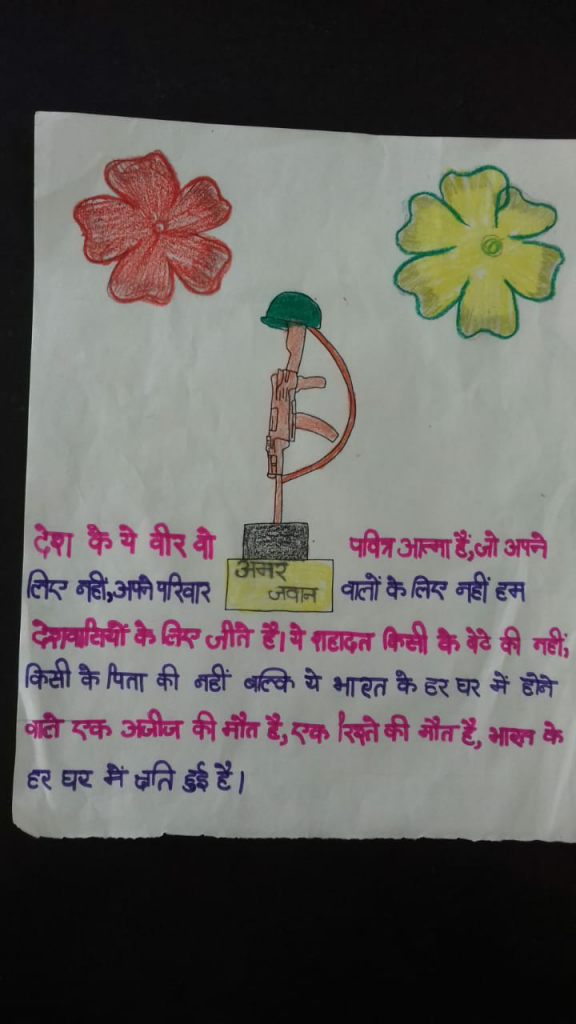 देश के ये वीर वो पवित्र आत्मा हैं,जो अपने
लिए नहीं,अपने परिवार वालों के लिए नहीं हम
अमर
जवान
देशवासियों के लिए जीते है। ये शहादत किसी के बेटे की नहीं,
किसी के पिता की नहीं बल्कि ये भारत के हर घर में होने
वाले एक अजीज की मौत है, एक रिश्ते की मौत है, भारत के
हर घर में क्षति हुई है।